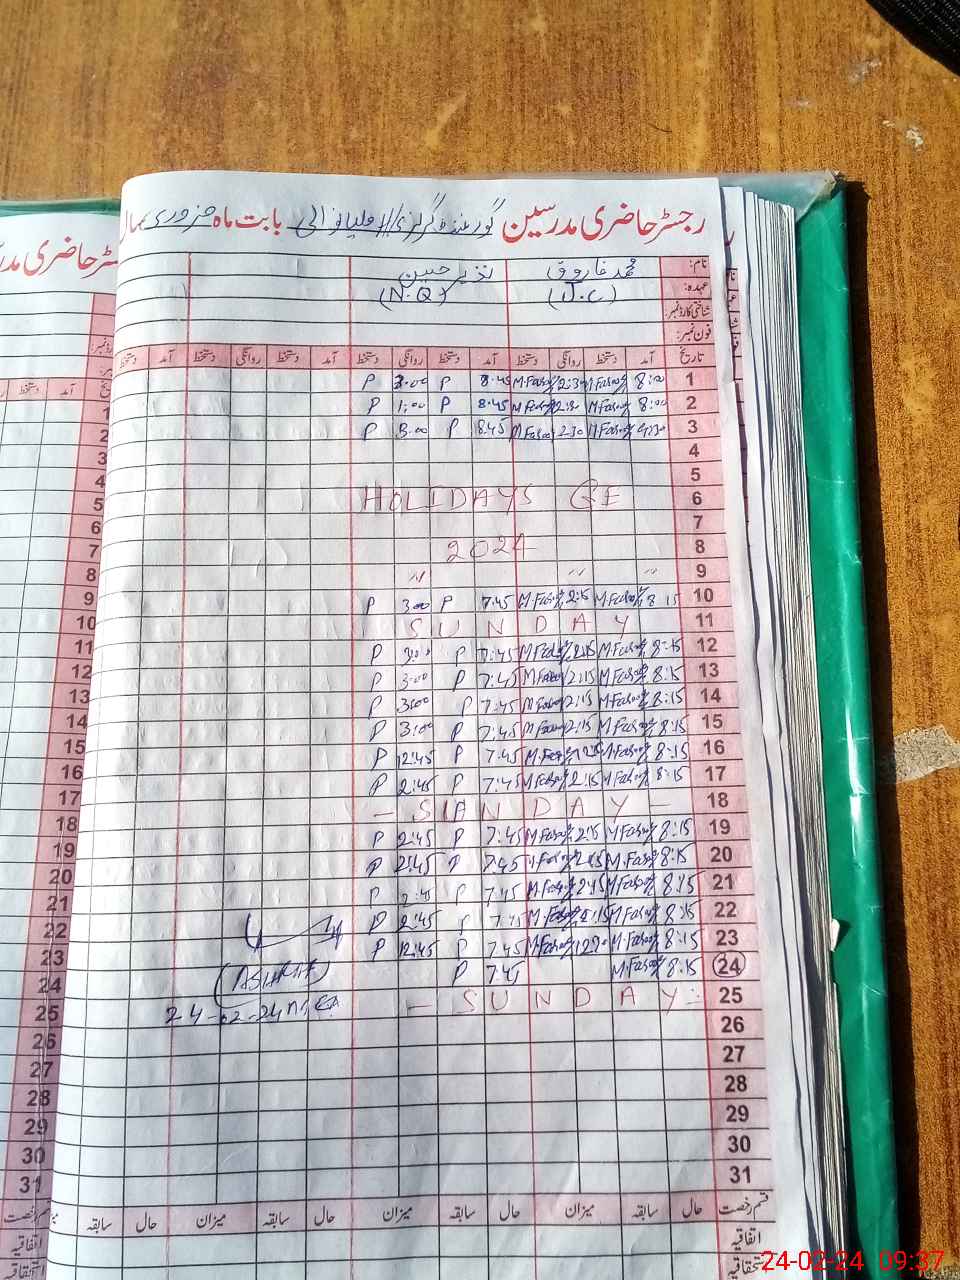 رجسٹر حاضری مدرسین گورنمنٹ گرلز بابت ماہ فروری سال
نام: محمد فاروق نذیر حسین
عہدہ: (J.C) (N.Q)
شناختی کارڈ نمبر:
فون نمبر:
تاریخ آمد دستخط روانگی دستخط آمد دستخط روانگی دستخط آمد دستخط روانگی دستخط آمد دستخط
1 8:00 M.Farooq 2:30 M.Farooq 8:45 P 3:00 P
2 8:00 M.Farooq M.Farooq 8:45 P 1:00 P
3 M.Farooq 2:30 M.Farooq 8:45 P 3:00 P
4
5
6 HOLIDAYS GE
7
8 2024
9 " " "
10 8:15 M.Farooq 2:15 M.Farooq 7:45 P 3:00 P
11 SUNDAY
12 8:15 M.Farooq 2:15 M.Farooq 7:45 P 3:00 P
13 8:15 M.Farooq 2:15 M.Farooq 7:45 P 3:00 P
14 8:15 M.Farooq 2:15 M.Farooq 7:45 P 3:00 P
15 8:15 M.Farooq 2:15 M.Farooq 7:45 P 3:00 P
16 8:15 M.Farooq M.Farooq 7:45 P 12:45 P
17 8:15 M.Farooq 2:15 M.Farooq 7:45 P 2:45 P
18 - SUNDAY -
19 8:15 M.Farooq 2:15 M.Farooq 7:45 P 2:45 P
20 8:15 M.Farooq 2:15 M.Farooq 7:45 P 2:45 P
21 8:15 M.Farooq 2:15 M.Farooq 7:45 P 2:45 P
22 8:15 M.Farooq 2:15 M.Farooq 7:45 P 2:45 P
23 8:15 M.Farooq M.Farooq 7:45 P 12:45 P
24 8:15 M.Farooq 7:45 P
25 - SUNDAY -
24-02-24
26
27
28
29
30
31
قسم رخصت حال سابقہ میزان حال سابقہ میزان حال سابقہ میزان حال سابقہ
اتفاقیہ
24-02-24 09:37